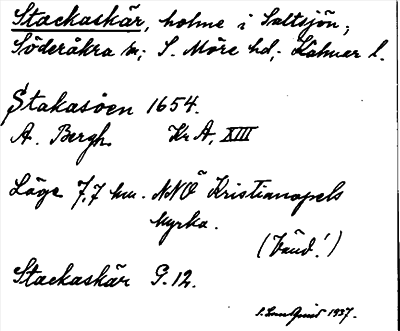 Stackaskär, holme i Saltsjön;
Söderåkra sn; S. Möre hd; Kalmar l.
Stakasöen 1654.
A. Bergh KrA, XIII
Läge 7,7 km. NNÖ Kristianopels
kyrka.
(Vänd!)
Stackaskär G.12.
S. Lundquist 1937.